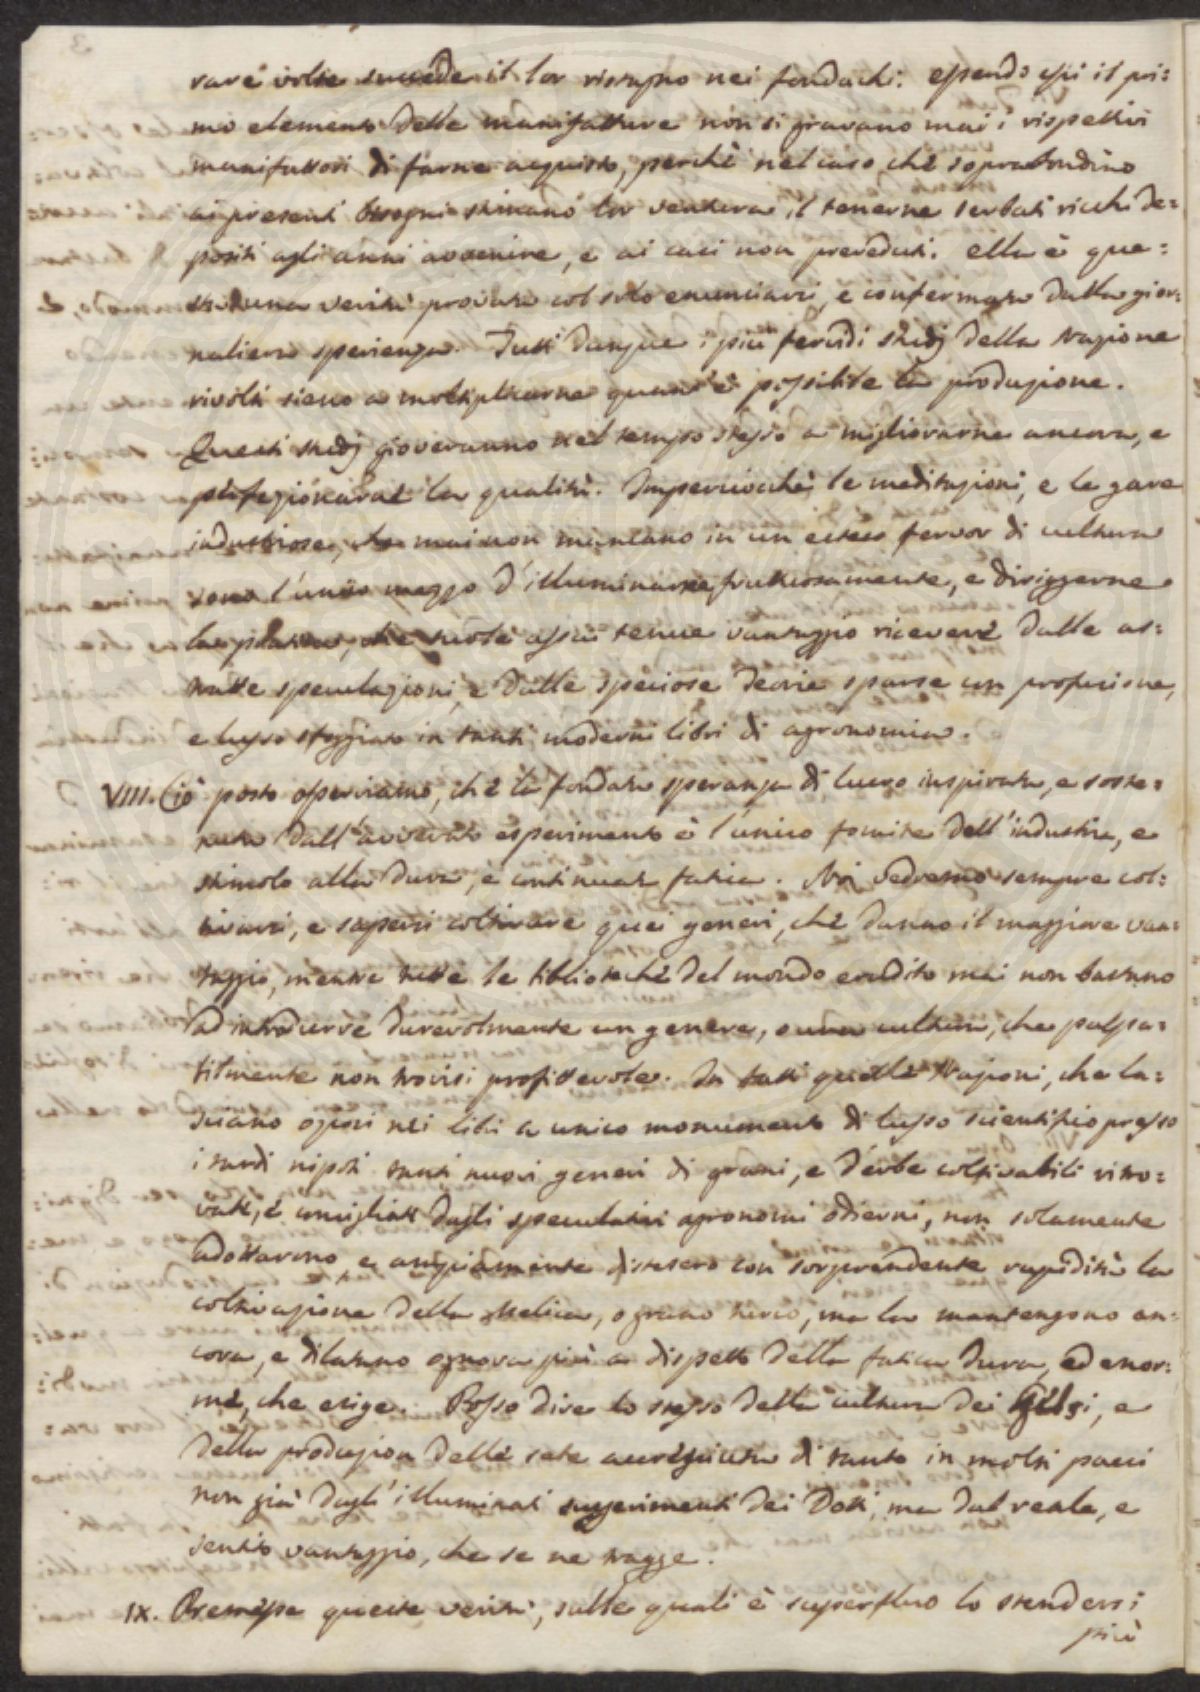 rare volte succede il lor ristagno nei fondachi: essendo essi il pri:
mo elemento delle manifatture non si gravano mai i rispettivi
manifattori di farne acquisto, perchè nel caso che soprabondino
ai presenti bisogni stimano lor ventura il tenerne serbati ricchi de:
positi agli anni avvenire, e ai casi non preveduti. ella è que:
sta una verità provata col solo enunciarsi, e confermata dalla gior:
naliera sperienza. Tutti dunque i più fervidi studj della Nazione
rivolti sieno a moltiplicarne quant'è possibile la produzione.
Questi studj gioveranno nel tempo stesso a migliorarne ancora, e
perfezionarne la qualità. Imperciocchè le meditazioni, e le gare
industriose, che mai non mancano in un esteso fervor di cultura
sono l'unico mezzo d'illuminarne fruttuosamente, e dirizzerne
la pratica, che suole assai tenue vantaggio ricevere dalle as:
tratte speculazioni, e dalle speciose teorie sparse con profusione,
e lusso sfoggiato in tanti moderni libri di agronomia.
VIII. Ciò posto osserviamo, che la fondata speranza di lucro inspirata, e soste:
nuta dall'avverato esperimento è l'unico fomite dell'industria, e
stimolo alla dura, e continuata fatica. Noi vedremo sempre col:
tivarsi, e sapersi coltivare quei generi, che danno il maggiore van:
taggio, mentre tutte le biblioteche del mondo erudito mai non bastano
ad introdurre durevolmente un genere, o una cultura, che palpa:
bilmente non trovisi profittevole. In fatti quelle Nazioni, che la:
sciano oziosi nei libri a unico monumento di lusso scientifico presso
i tardi nipoti tanti nuovi generi di grani, e d'erbe coltivabili ritro:
vati, e consigliati dagli speculativi agronomi odierni, non solamente
adottarono, e ampiamente distesero con sorprendente rapidità la
coltivazione della Melica, o grano turco, ma la mantengono an:
cora, e dilatano ognora più a dispetto della fatica dura, ed enor:
me, che esige. Posso dire lo stesso della cultura dei Gelsi, e
della produzion delle sete accresciuta di tanto in molti paesi
non già dagl'illuminati suggerimenti dei Dotti, ma dal reale, e
sentito vantaggio, che se ne tragge.
IX. Premesse queste verità, sulle quali è superfluo lo stendersi
più